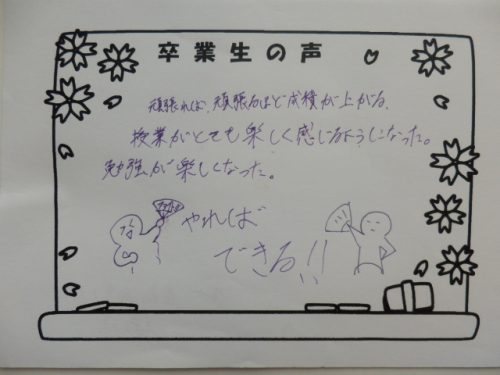 卒業生の声
頑張れば、頑張るほど成績が上がる。
授業がとても楽しく感じるようになった。
勉強が楽しくなった。
やれば
できる!!